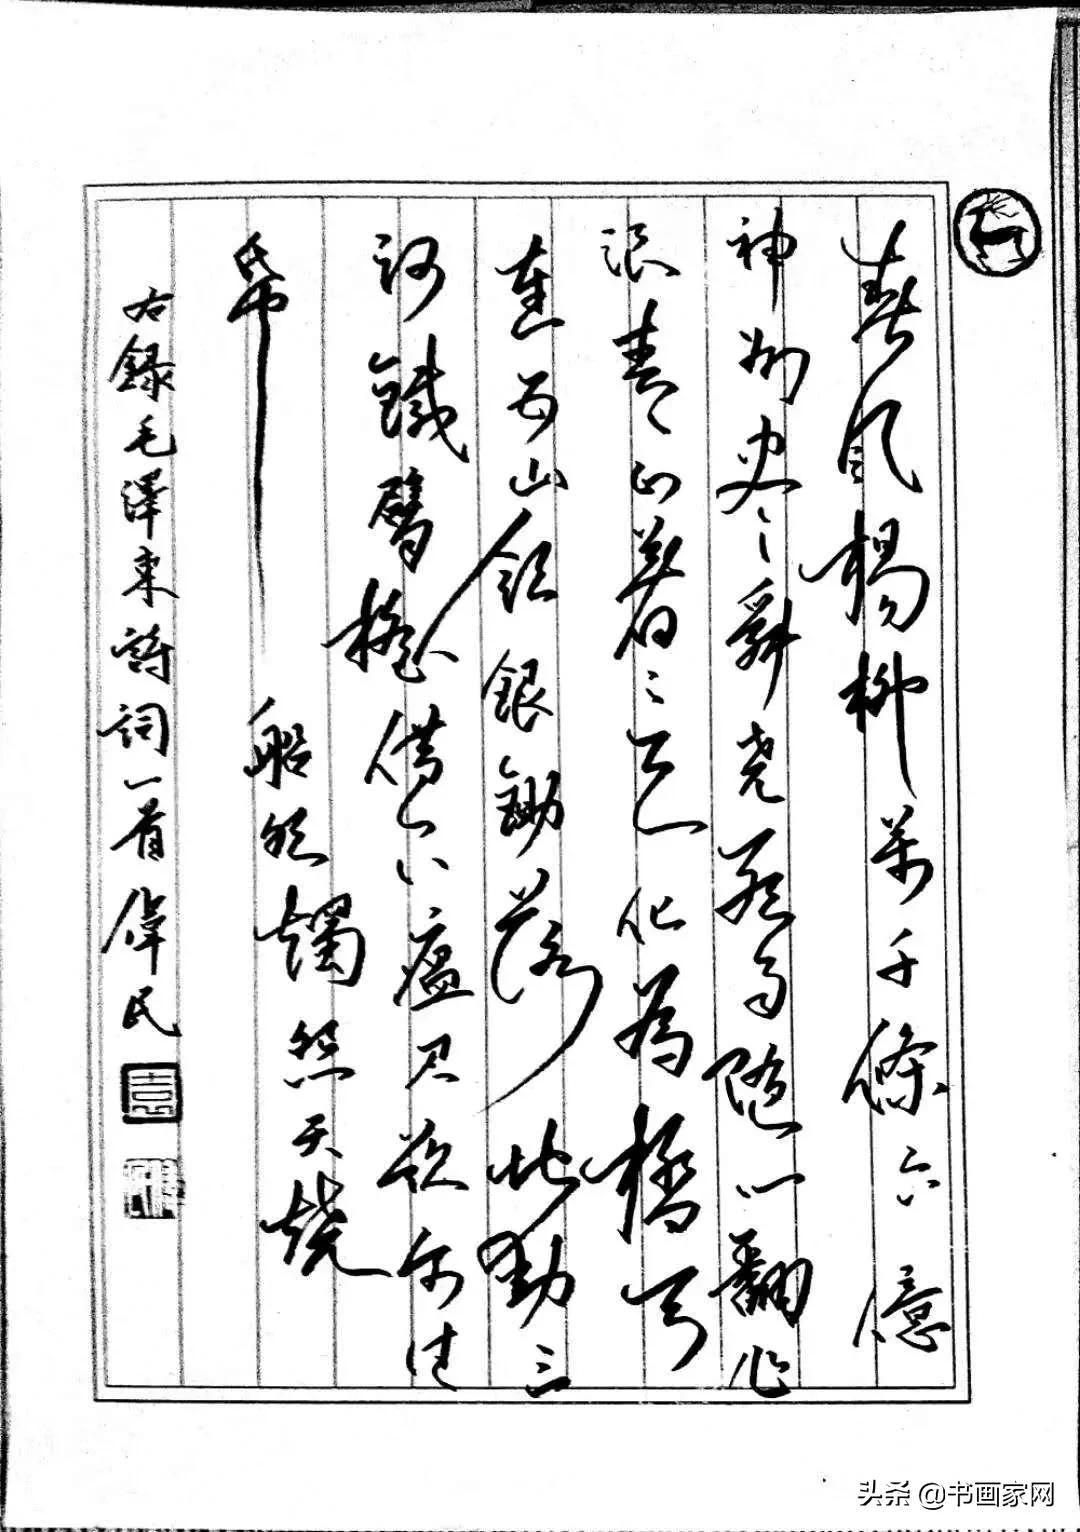 春風楊柳萬千條六億
神州盡舜尧紅雨随心翻作
浪青山着意化為橋天
連五嶺銀鋤落地動三
河鐵臂摇借问瘟君欲何往
帋船明燭照天燒
右録毛澤東詩詞一首偉民
头条 @书画家网